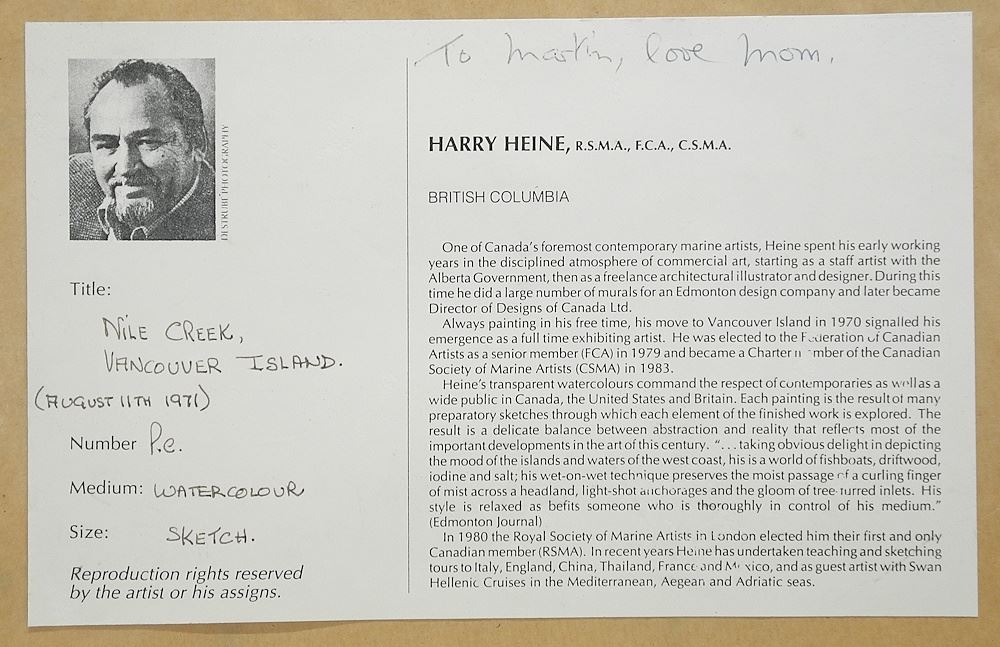 To Martin, love Mom.
DESTRUBÉ PHOTOGRAPHY
Title:
NILE CREEK,
VANCOUVER ISLAND.
(AUGUST 11TH 1971)
Number P.C.
Medium: WATERCOLOUR
Size: SKETCH.
Reproduction rights reserved
by the artist or his assigns.
HARRY HEINE, R.S.M.A., F.C.A., C.S.M.A.
BRITISH COLUMBIA
One of Canada's foremost contemporary marine artists, Heine spent his early working
years in the disciplined atmosphere of commercial art, starting as a staff artist with the
Alberta Government, then as a freelance architectural illustrator and designer. During this
time he did a large number of murals for an Edmonton design company and later became
Director of Designs of Canada Ltd.
Always painting in his free time, his move to Vancouver Island in 1970 signalled his
emergence as a full time exhibiting artist. He was elected to the Federation of Canadian
Artists as a senior member (FCA) in 1979 and became a Charter member of the Canadian
Society of Marine Artists (CSMA) in 1983.
Heine's transparent watercolours command the respect of contemporaries as well as a
wide public in Canada, the United States and Britain. Each painting is the result of many
preparatory sketches through which each element of the finished work is explored. The
result is a delicate balance between abstraction and reality that reflects most of the
important developments in the art of this century. "... taking obvious delight in depicting
the mood of the islands and waters of the west coast, his is a world of fishboats, driftwood,
iodine and salt; his wet-on-wet technique preserves the moist passage of a curling finger
of mist across a headland, light-shot anchorages and the gloom of tree-furred inlets. His
style is relaxed as befits someone who is thoroughly in control of his medium."
(Edmonton Journal)
In 1980 the Royal Society of Marine Artists in London elected him their first and only
Canadian member (RSMA). In recent years Heine has undertaken teaching and sketching
tours to Italy, England, China, Thailand, France and Mexico, and as guest artist with Swan
Hellenic Cruises in the Mediterranean, Aegean and Adriatic seas.